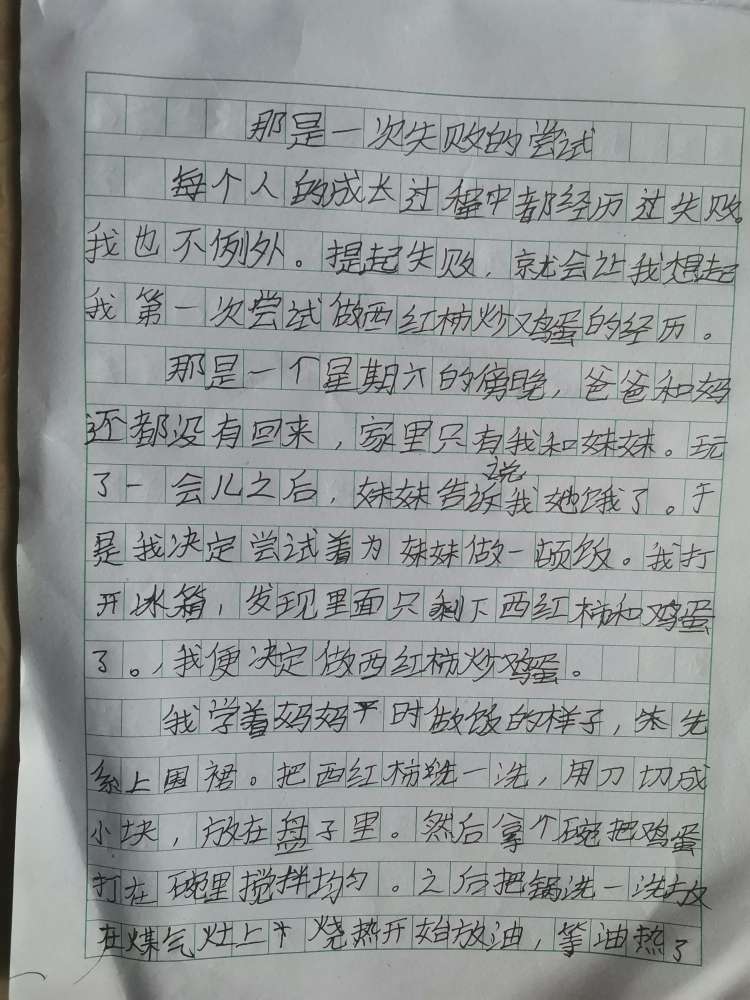 那是一次失败的尝试
每个人的成长过程中都经历过失败。
我也不例外。提起失败，就会让我想起
我第一次尝试做西红柿炒鸡蛋的经历。
那是一个星期六的傍晚，爸爸和妈
还都没有回来，家里只有我和妹妹。玩
了一会儿之后，妹妹告诉说我她饿了。于
是我决定尝试着为妹妹做一顿饭。我打
开冰箱，发现里面只剩下西红柿和鸡蛋
了。，我便决定做西红柿炒鸡蛋。
我学着妈妈平时做饭的样子，先
系上围裙。把西红柿洗一洗，用刀切成
小块，放在盘子里。然后拿个碗把鸡蛋
打在碗里搅拌均匀。之后把锅洗一洗放
在煤气灶上烧热开始放油，等油热了